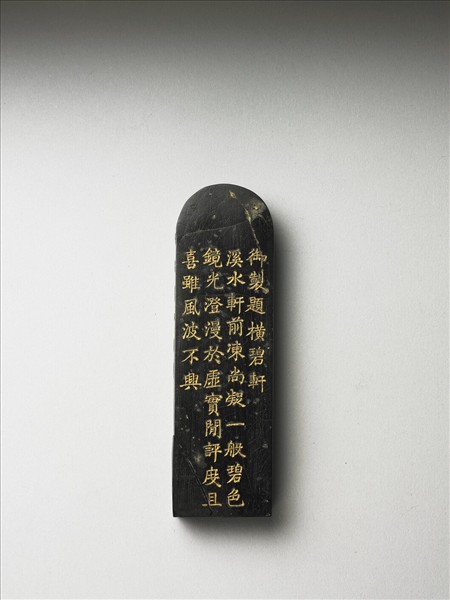 御製題橫碧軒
溪水軒前凍尚凝一般碧色
鏡光澄漫於虛實閒評度且
喜雖風波不興